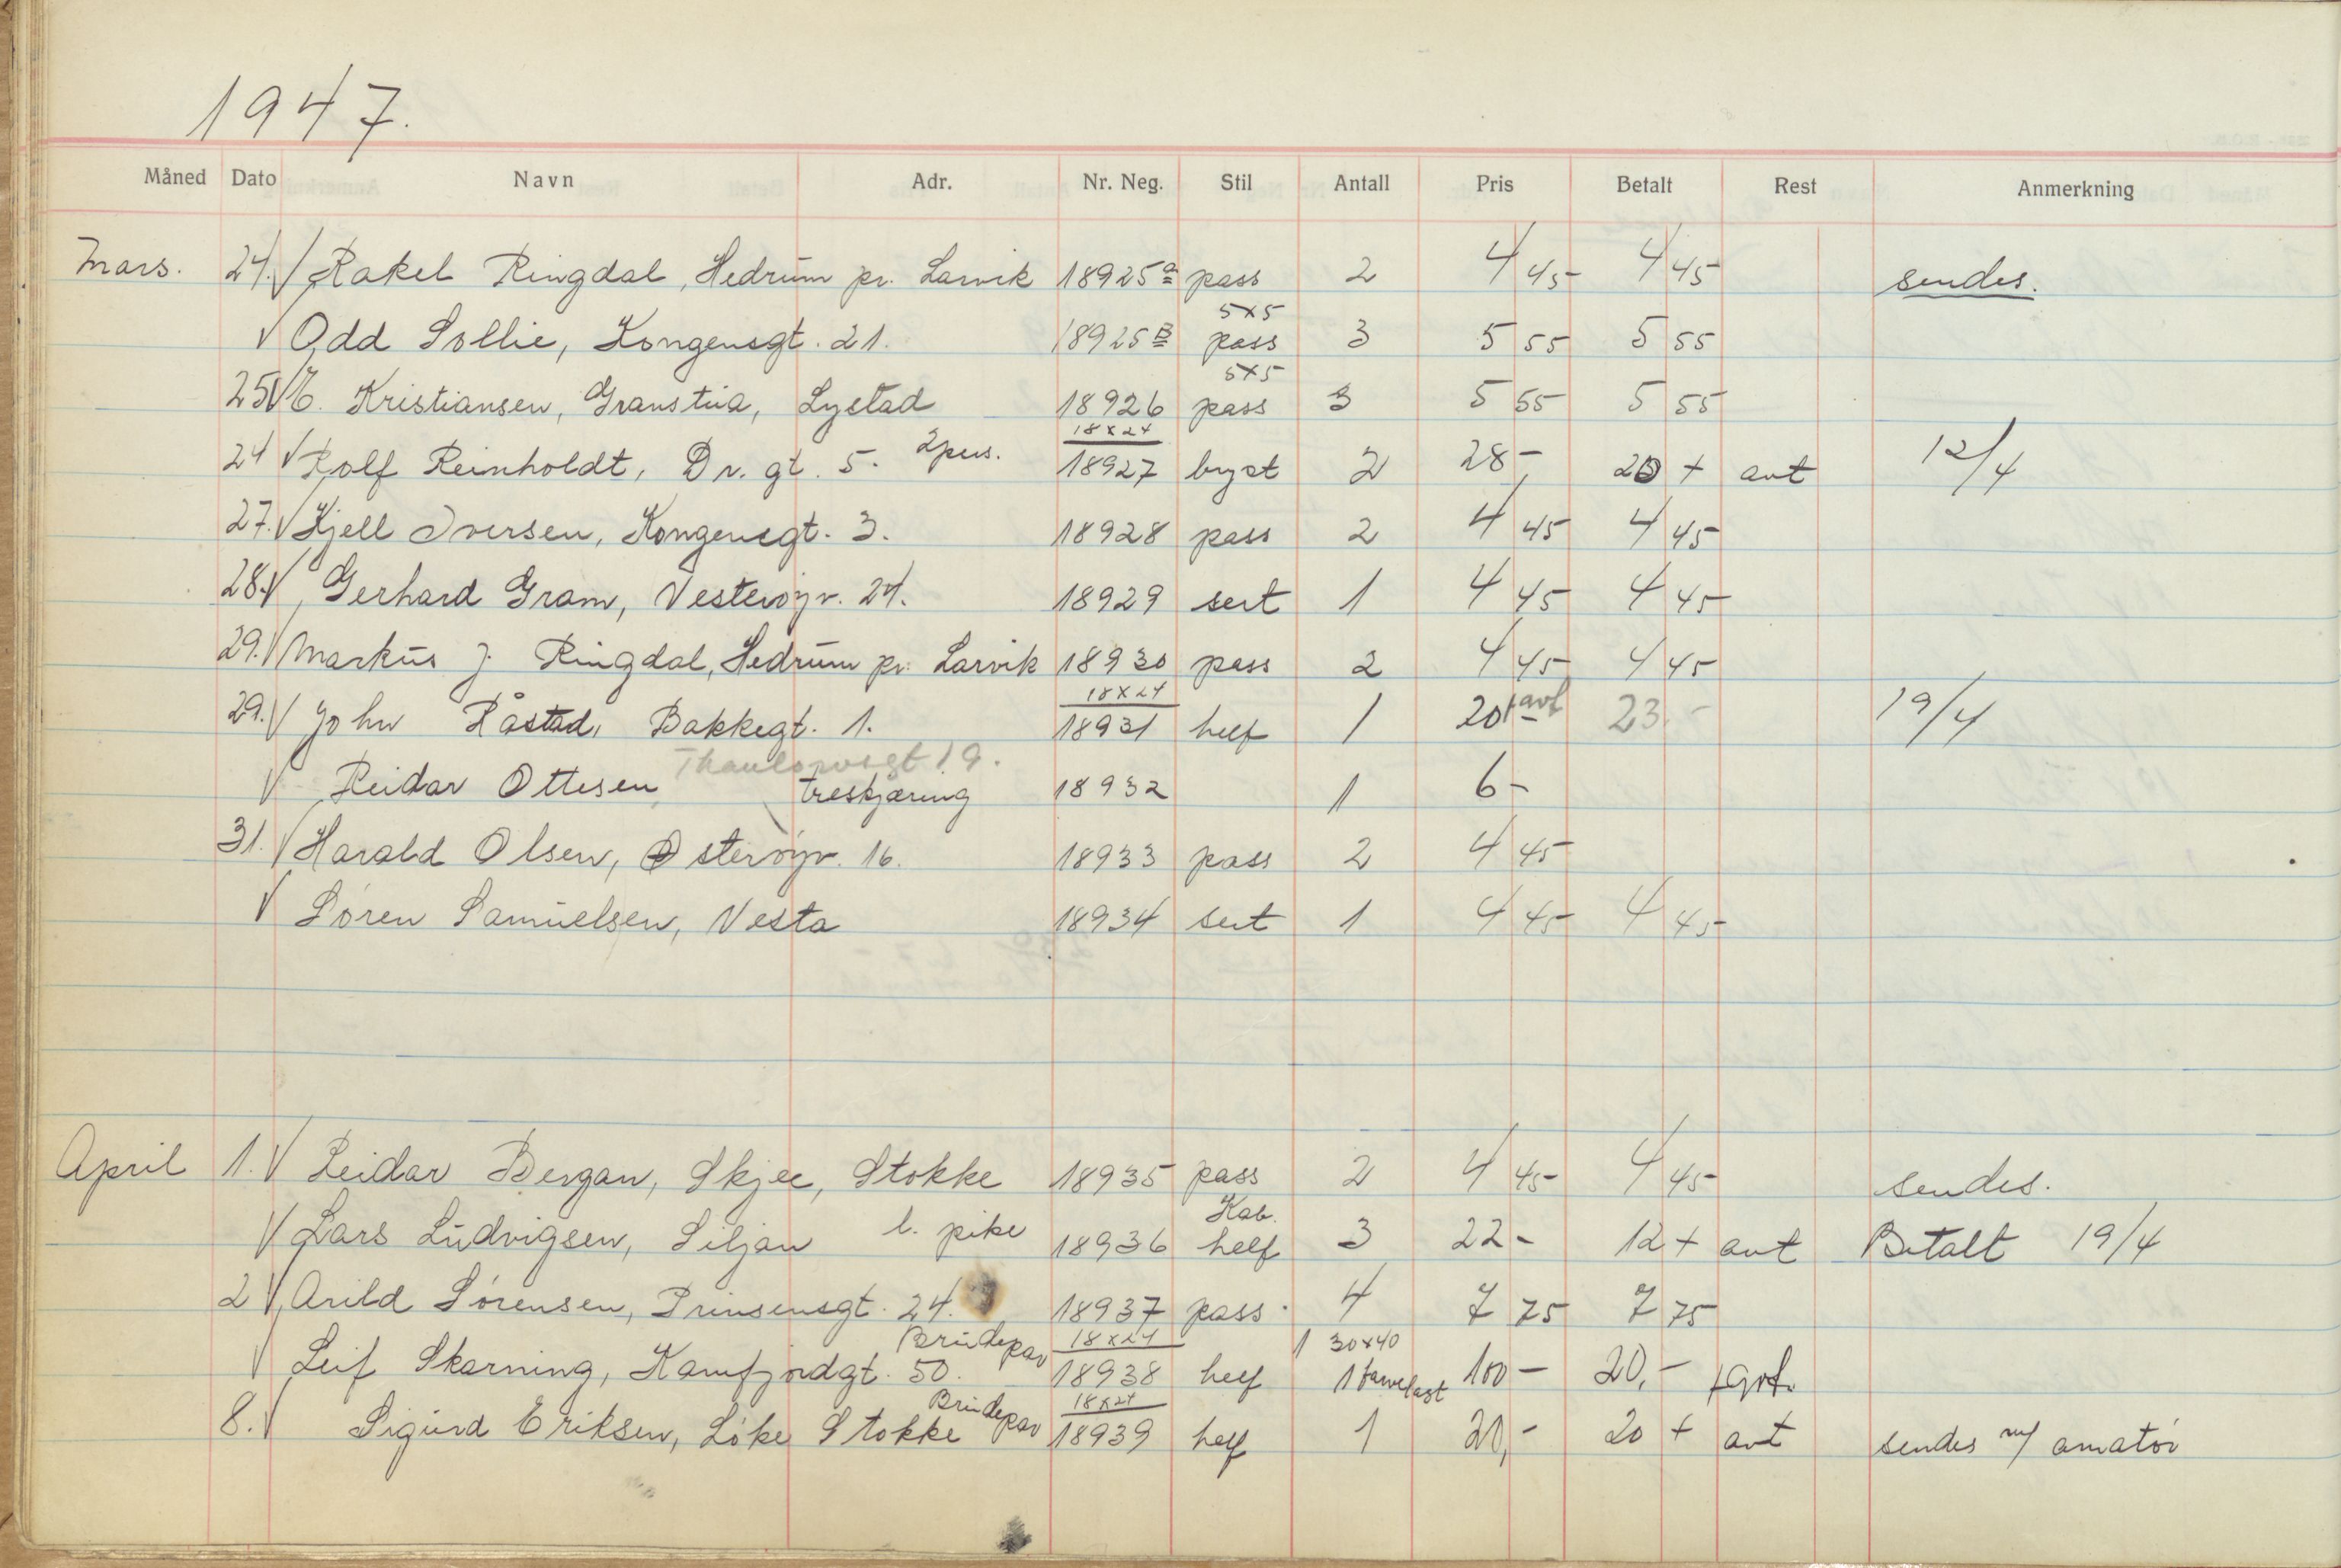 1947.
Måned Dato Navn Adr. Nr. Neg. Stil Antall Pris Betalt Rest Anmerkning
Mars. 24. √ Rakel Ringdal, Hedrum pr. Larvik 18925a pass 2 4 45 4 45 sendes.
5x5
√ Odd Sollie, Kongensgt. 21. 18925B pass 3 5 55 5 55
5x5
25 √ Kristiansen, Lystad 18926 pass 3 5 55 5 55
18x24
24 √ Rolf Reinholdt, Dr. gt. 5. 2 pers. 18927 byst 2 28 - 20 + avt 12/4
27. √ Kjell Iversen, Kongensgt. 3. 18928 pass 2 4 45 4 45
28. √ Gerhard Gram, Vesterøyv. 24. 18929 sert 1 4 45 4 45
29. √ Markus J. Ringdal, Hedrum pr. Larvik 18930 pass 2 4 45 4 45
18x24
29. √ John Råstad, Bakkegt. 1. 18931 helf 1 20 + avt 23 - 19/4
Thaulowsgt 19.
√ Reidar Ottesen treskjæring 18932 1 6 -
31. √ Harald Olsen, Østerøyv. 16. 18933 pass 2 4 45
√ Søren Samuelsen, Vesta 18934 sert 1 4 45 4 45
April 1. √ Reidar Bergan, Skjee, Stokke 18935 pass 2 4 45 4 45 sendes.
Kab.
√ Lars Ludvigsen, Siljan l. pike 18936 helf 3 22 - 12 + avt Betalt 19/4
2 √ Arild Sørensen, Prinsensgt. 24. 18937 pass 4 7 75 7 75
Brudepar 18x24 1 30x40
√ Leif Skarning, Kamfjordgt. 50. 18938 helf 1 farvelagt 100 - 20,- + avt.
Brudepar 18x24
8. √ Sigurd Eriksen, Løke Stokke 18939 helf 1 20,- 20 + avt sendes m/ amatør